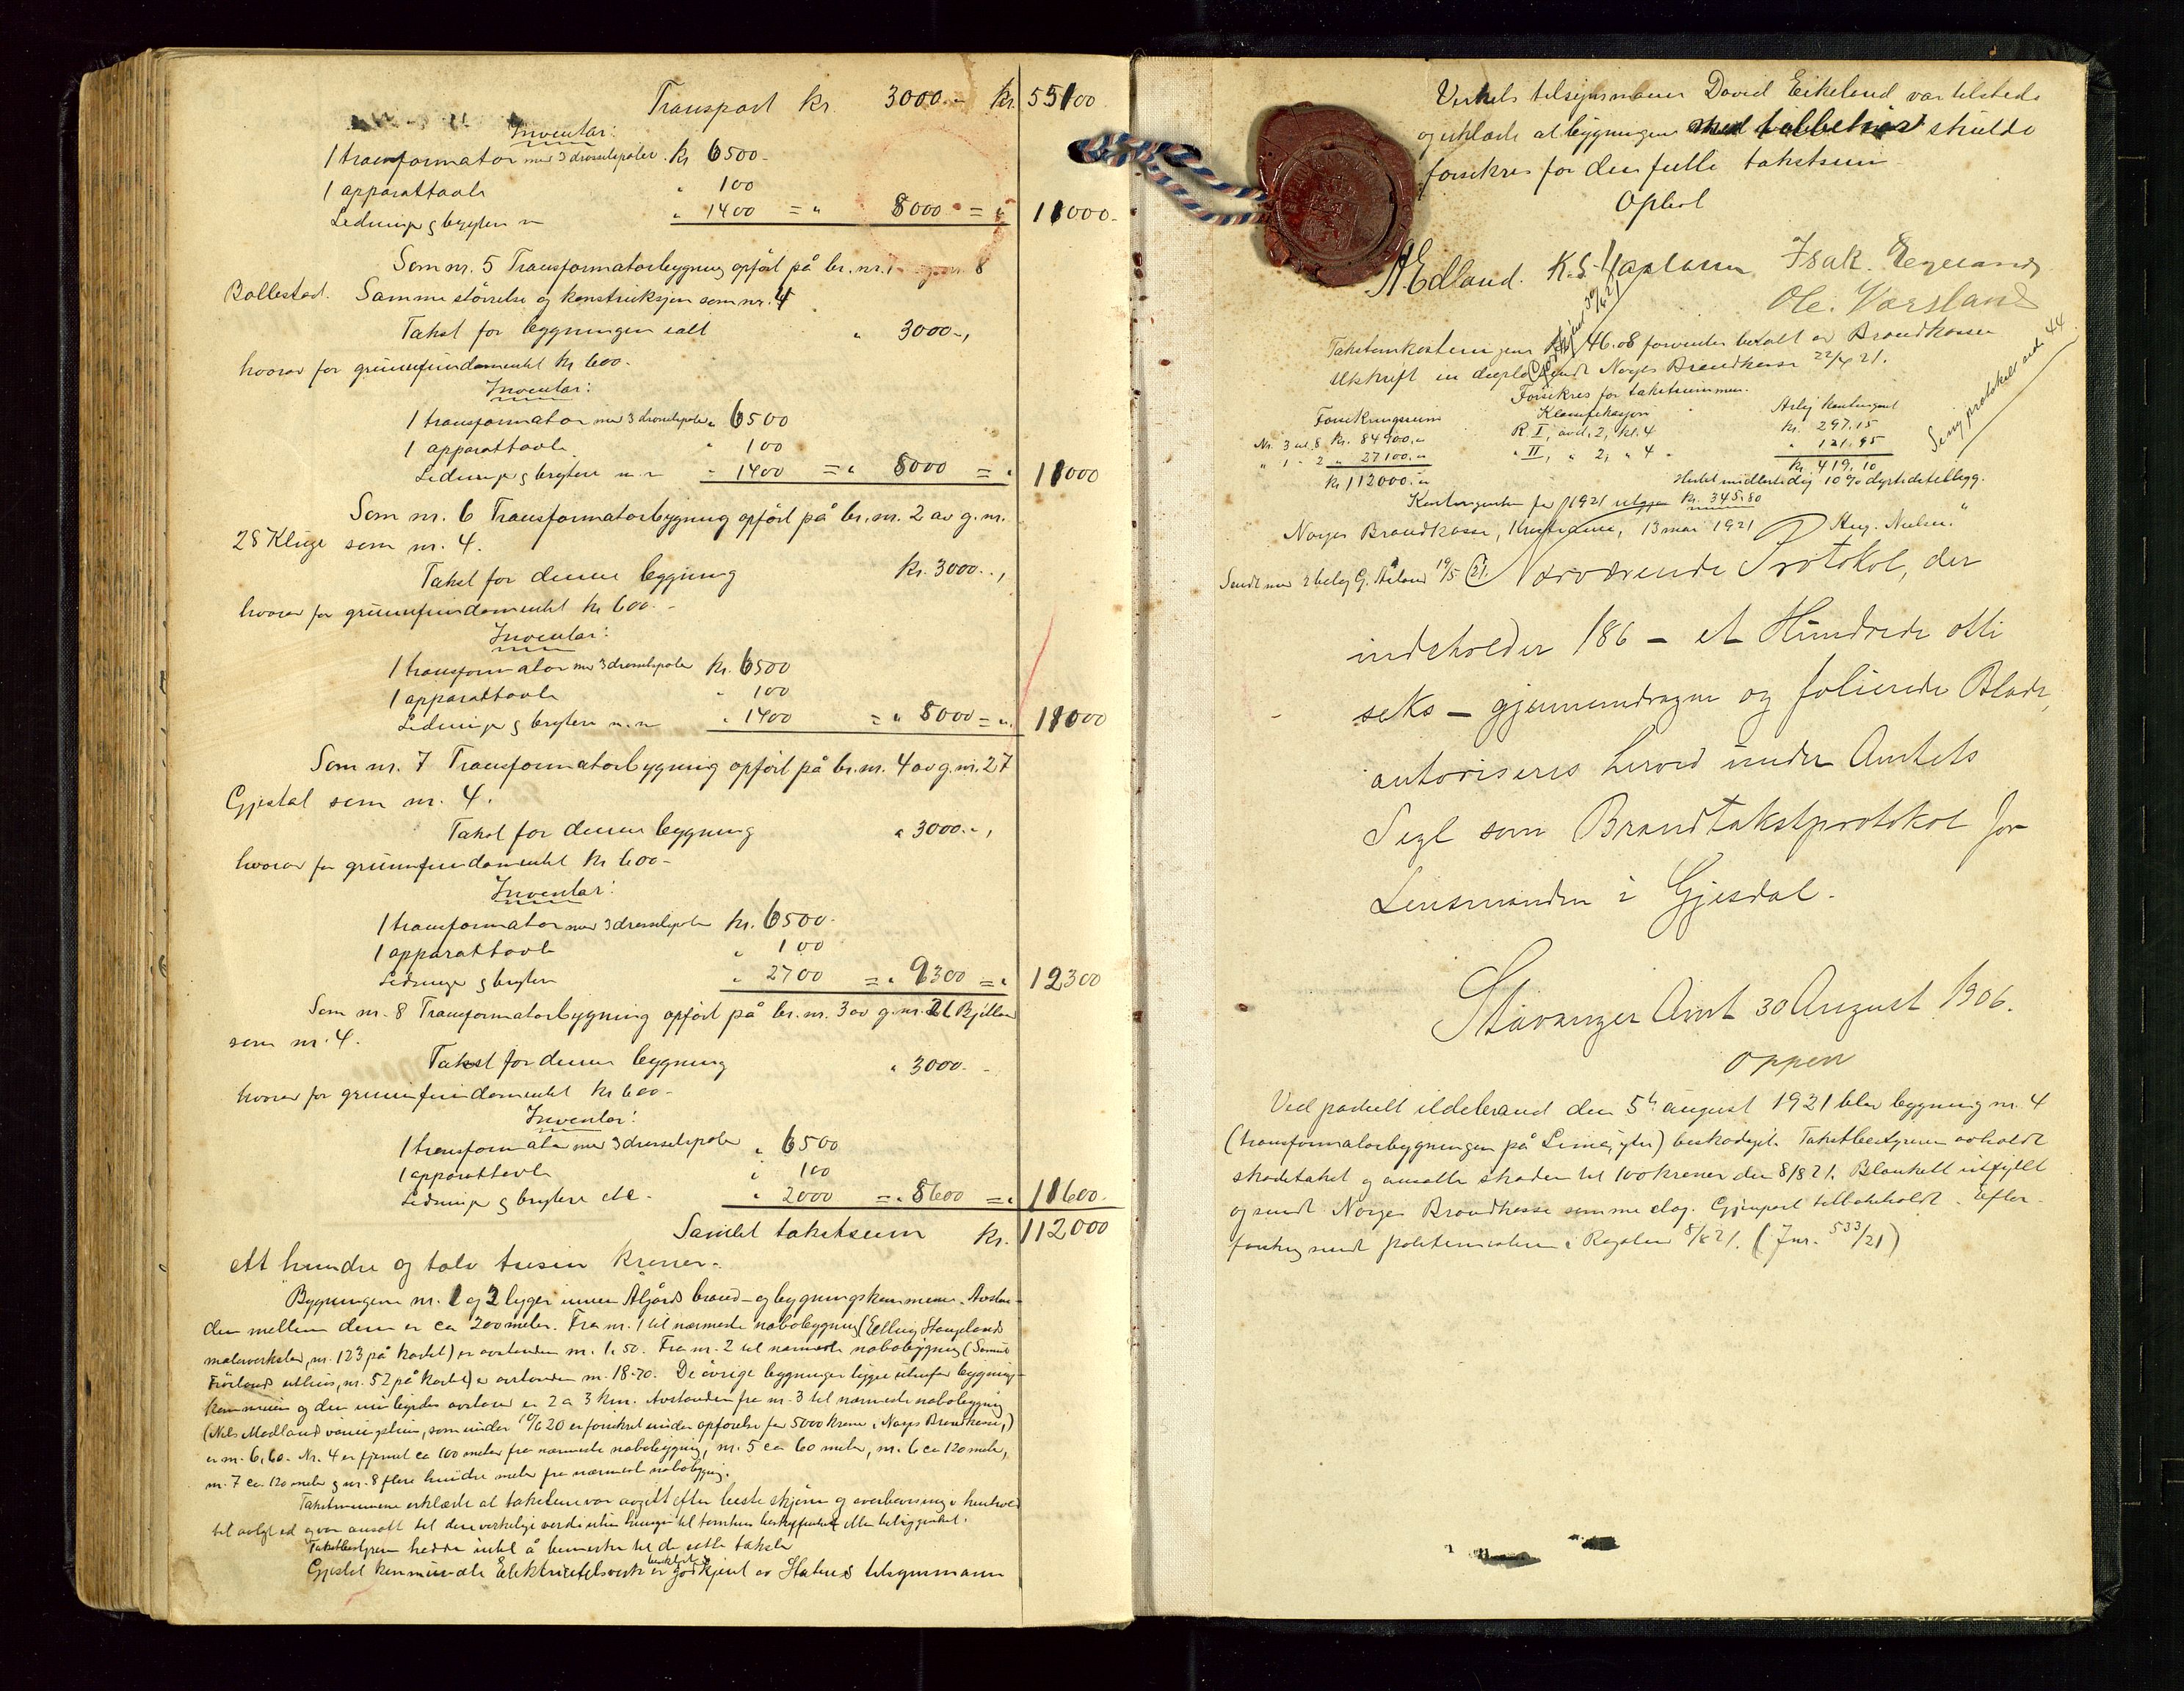 Transport kr. 3000.- kr. 55100
Inventar:
1 transformator med 3 drosselspoler. kr. 6500.-
1 apparattavle " 100
Ledninger og brytere m " 1400 = " 8000 = " 11000.-
Som nr. 5 Transformatorbygning opført på br. nr. 1 g. nr. 8
Bollestad. Samme størrelse og konstruksjon som nr. 4
Takst for bygningen ialt " 3000.-,
hvorav for grunnfundamentet kr 600.-
Inventar:
1 transformator med 3 drosselspoler " 6500
1 apparattavle " 100
Ledninger og brytere m.m " 1400 = " 8000 = " 11000
Som nr. 6 Transformatorbygning opført på br. nr. 2 av g. nr.
28 Kluge som nr. 4.
Takst for denne bygning kr. 3000.-,
hvorav for grunnfundamentet kr 600.-
Inventar:
1 transformator med 3 drosselspoler kr. 6500
1 apparattavle " 100
Ledninger og brytere m.m " 1400 = " 8000 = " 11000
Som nr. 7 Transformatorbygning opført på br. nr. 4 av g. nr. 27
Gjestal som nr. 4.
Takst for denne bygning " 3000.-,
hvorav for grunnfundamentet kr 600.-
Inventar:
1 transformator med 3 drosselspoler kr. 6500.-
1 apparattavle " 100
Ledninger og brytere " 2700 = " 9300 = " 12300
Som nr. 8 Transformatorbygning opført på br. nr. 3 av g. nr.
som nr. 4.
Takst for denne bygning " 3000.-
hvorav for grunnfundamentet kr 600.-
Inventar:
1 transformator med 3 drosselspoler " 6500
1 apparattavle " 100
Ledninger og brytere etc. " 2000 = " 8600 = " 11600.-
Samlet takstsum kr. 112000
ett hundre og tolv tusen kroner.-
Bygningene nr. 1 og 2 ligger innen Ålgård brand- og bygningskommune. Avstan-
den mellem dem er ca 200 meter. Fra nr. 1 til nærmeste nabobygning (Elling Staurlands
malerverksted, nr. 123 på kartet) er avstanden m. 1.50. Fra nr. 2 til nærmeste nabobygning (Samuel
uthus, nr. 52 på kartet) er avstanden m. 18.70. De øvrige bygninger ligger utenfor bygnings-
kommunen og den innbyrdes avstand er 2 a 3 km. Avstanden fra nr. 3 til nærmeste nabobygning
(Nils Madland våningshus, som under er forsikret under opførelse for 5000 kroner i Norges Brandkasse,)
er m. 6.60. Nr. 4 er fjernet ca 100 meter fra nærmeste nabobygning, nr. 5 ca 60 meter, nr. 6 ca 120 meter,
nr. 7 ca 120 meter og nr. 8 flere hundre meter fra nærmeste nabobygning.
Takstmennene erklærte at takstene var avgitt efter beste skjønn og overbevisning i henhold
til avlagt ed og var ansatt til den virkelige verdi uten hensyn til tomtens beskaffenhet eller beliggenhet.
Takstbestyreren hadde intet å bemerke til de satte takster
Gjestal kommunale Elektrisitetsverk er godkjent av Statens tilsynsmann
Verkets tilsynsmann David Eikeland var tilstede
og erklærte at bygningene med tilbehør skulde
forsikres for den fulle takstsum
Oplest
A. Edland. K. S. Isak. Egeland
Ole. Varsland
Takstomkostningene kr. 46.08 forventes betalt av Brandkassen
Utskrift in duplo sendt Norges Brandkasse 22/4 21.
Forsikres for takstsummen.
Forsikringssum Klassifikasjon Årlig kontingent
Nr. 3 til 8 kr. 84900.- R. I, avd. 2, kl. 4 kr. 297.15
" 1 - 2 " 27100.- " II, " 2, " 4 " 121.95
kr. 112000.- kr. 419.10
Hertil midlertidig 10 % dyrtidstillegg.
Kontingenten for 1921 utgjør kr. 345.80
Se ny protokol side 44
Norges Brandkasse, Kristiania, 13 mai 1921 Aug. Nielsen."
Sendt med 2 belag G. Ålgård 19/5 21.
Nærværende Protokol, der
indeholder 186 - et Hundrede otti
seks - gjennemdragne og folierede Blade,
autoriseres herved under Amtets
Segl som Brandtakstprotokol for
Lensmanden i Gjesdal.
Stavanger Amt 30 August 1906.
Oppen
Ved partiell ildebrand den 5te august 1921 blev bygning nr. 4
(transformatorbygningen på Lima, ytre) beskadiget. Takstbestyreren avholdt
skadetakst og ansatte skaden til 100 kroner den 8/8 21. Blankett utfyllt
og sendt Norges Brandkasse samme dag. Gjenpart tilbakeholdt. Efter-
forskning sendt politimesteren i Rogaland 8/8 21. (Jnr. 533/21)